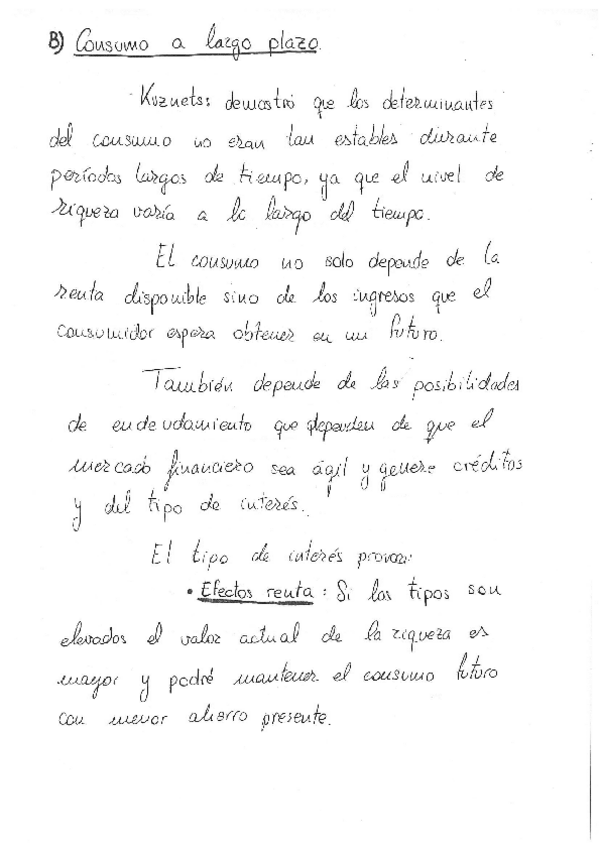 B) Consumo a largo plazo.
Kuznets: demostró que los determinantes
del consumo no eran tan estables durante
períodos largos de tiempo, ya que el nivel de
riqueza varía a lo largo del tiempo.
El consumo no solo depende de la
renta disponible sino de los ingresos que el
consumidor espera obtener en un futuro.
También depende de las posibilidades
de endeudamiento que dependen de que el
mercado financiero sea ágil y genere créditos
y del tipo de interés.
El tipo de interés provoca:
• Efectos renta: Si los tipos son
elevados el valor actual de la riqueza es
mayor y podré mantener el consumo futuro
con menor ahorro presente.